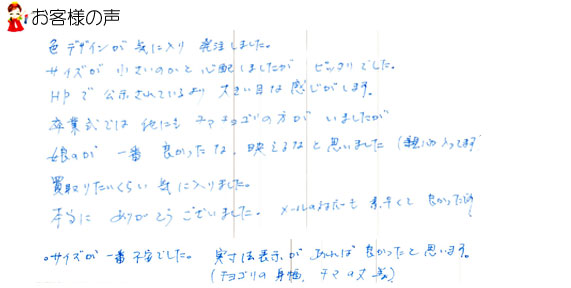 お客様の声
色デザインが気に入り 発注しました。
サイズが 小さいのかと心配しましたが ピッタリでした。
HPで 公示されているより 大きい目な感じがします。
卒業式では 他にも チマチョゴリの方が いましたが
娘のが 一番 良かったな、映えるなと思いました（親バカ入ってます
買取りたいくらい 気に入りました。
本当に ありがとうございました。 メールの対応も 素早くて 良かったです
。サイズが一番不安でした。 実寸法表示が あれば 良かったと思います。
（チョゴリの身幅、チマの丈 等）